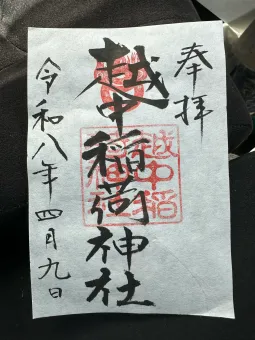 奉拝
越中稲荷神社
令和八年四月九日